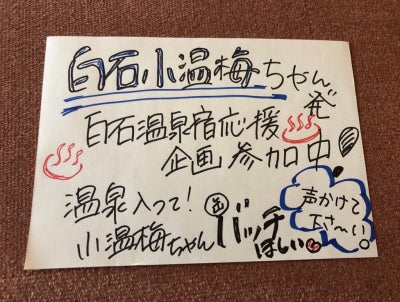 白石小温梅ちゃん発
白石温泉宿応援
企画参加中!
温泉入って!
小温梅ちゃん
缶バッチ
ほしい。
声かけて
下さ〜い。